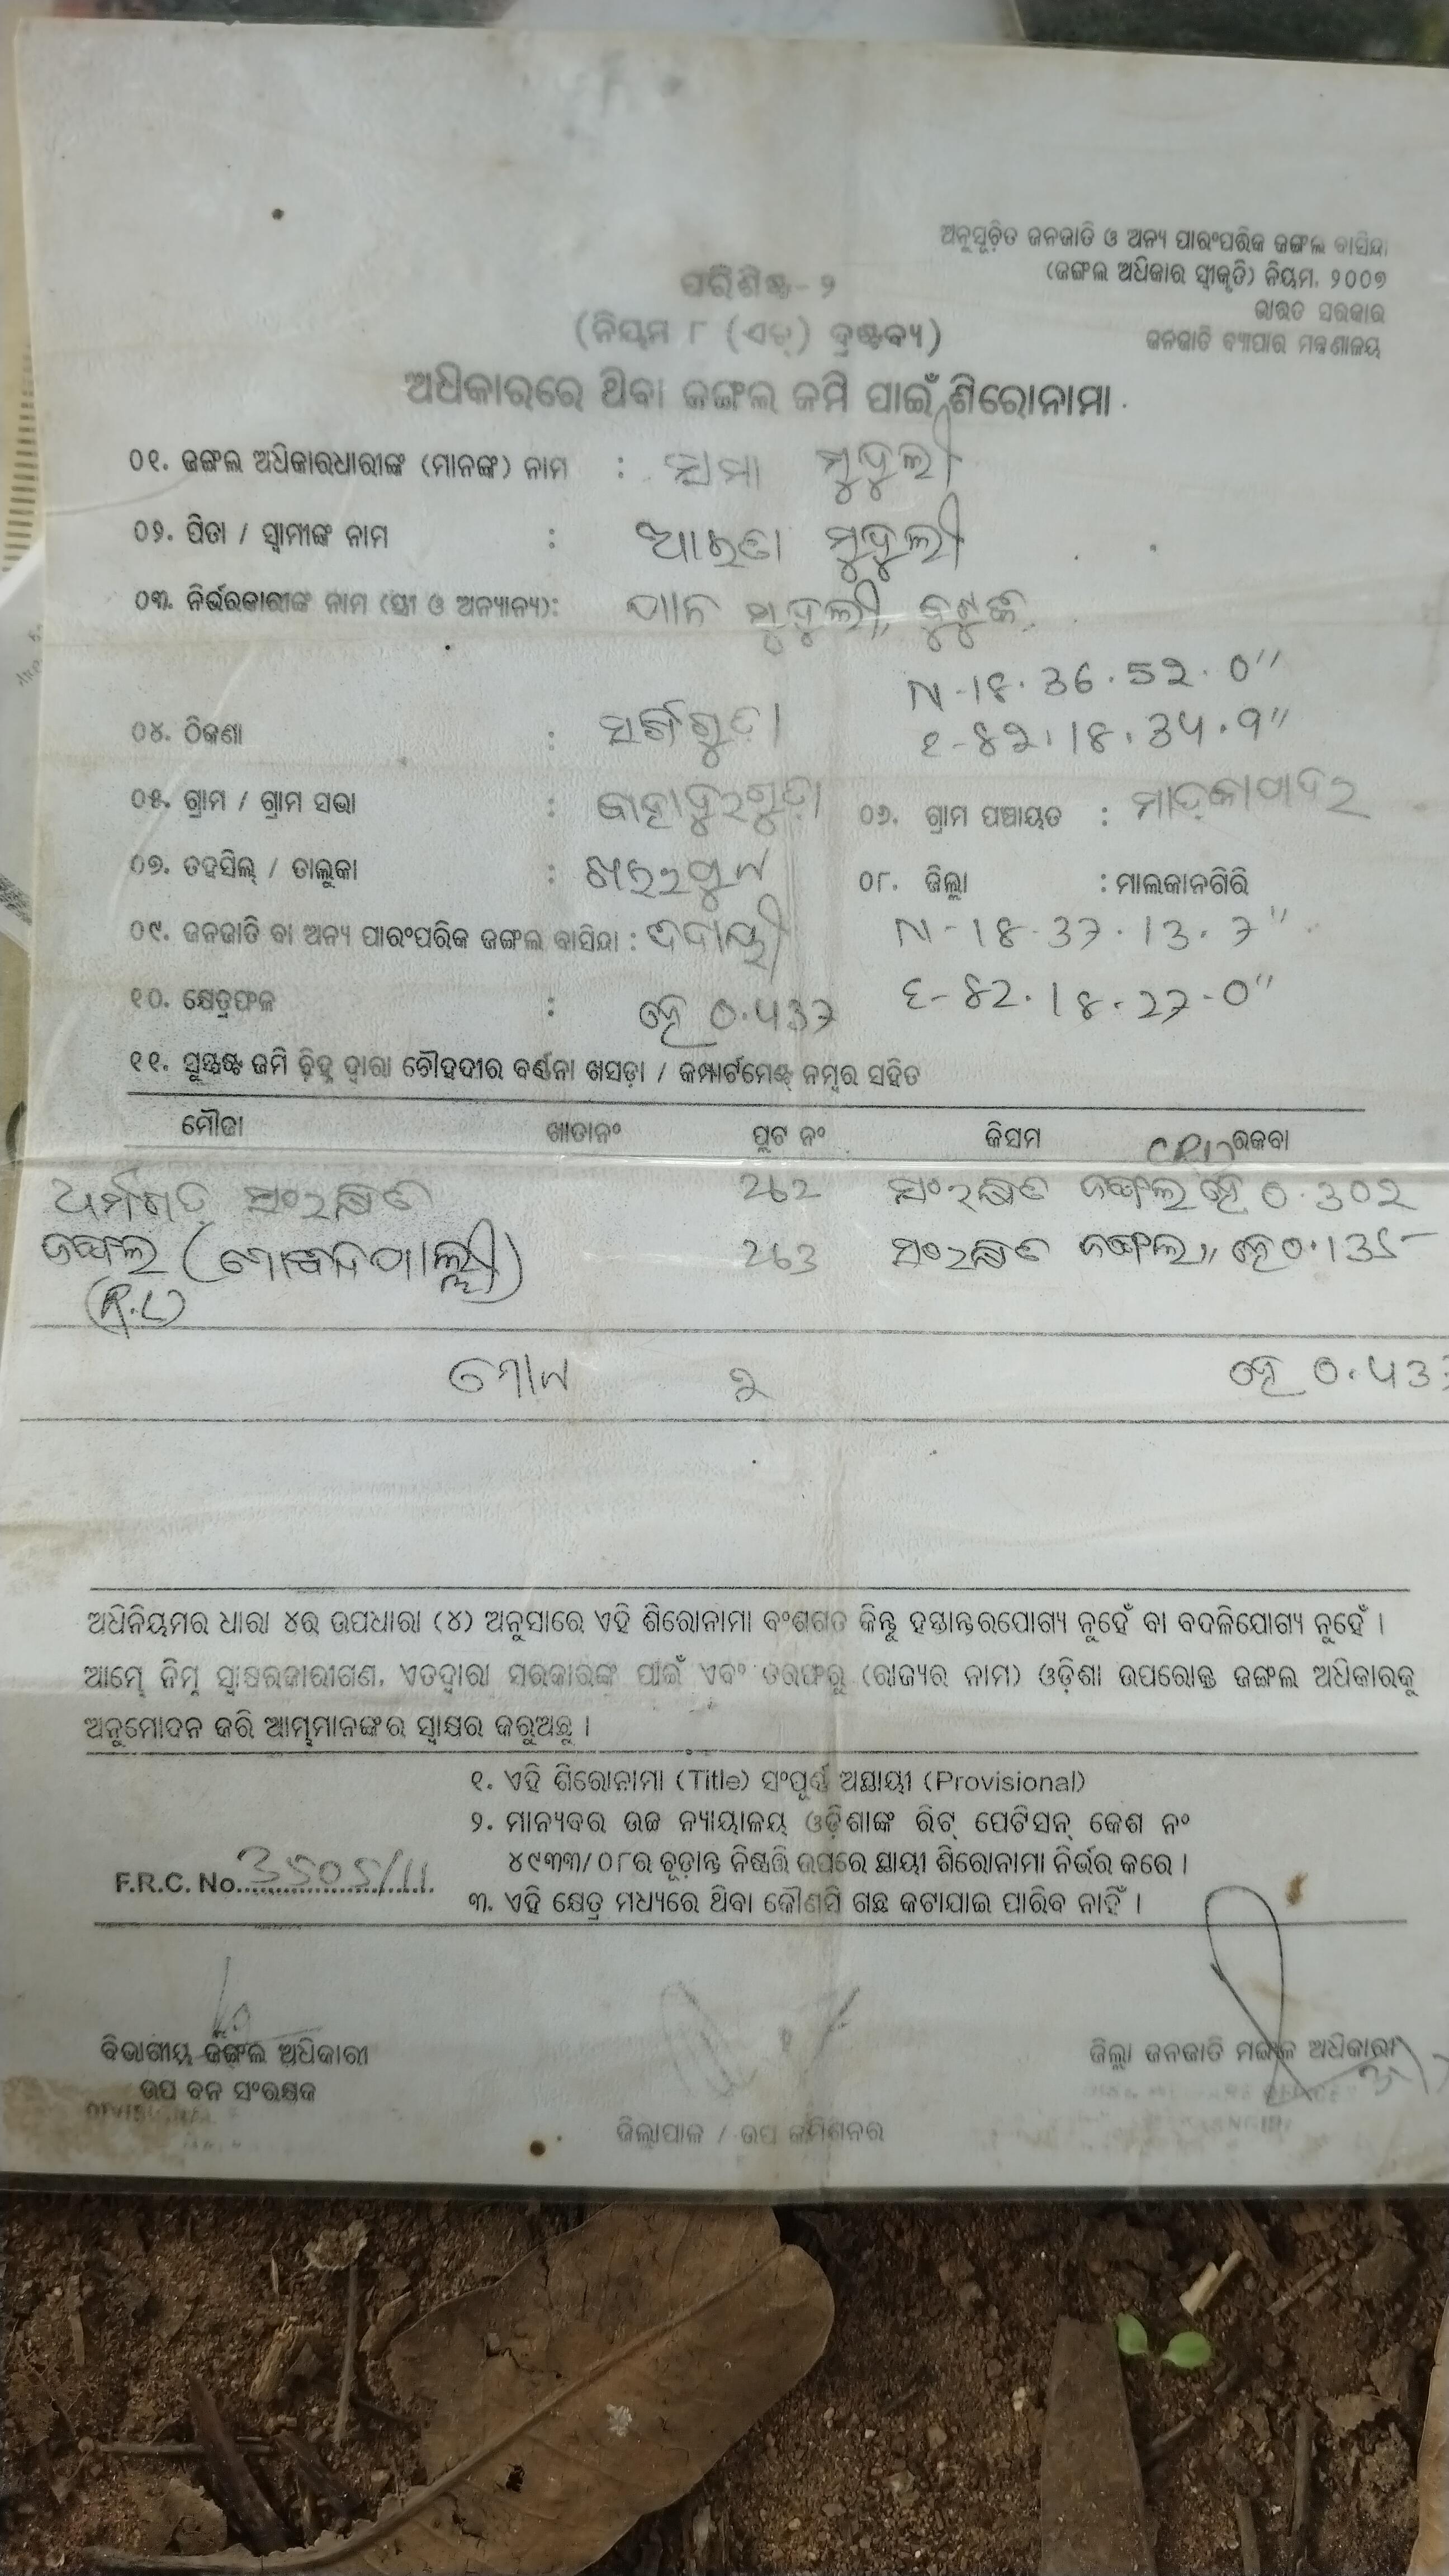 ଅନୁସୂଚିତ ଜନଜାତି ଓ ଅନ୍ୟ ପାରଂପରିକ ଜଙ୍ଗଲ ବାସିନ୍ଦା
(ଜଙ୍ଗଲ ଅଧିକାର ସ୍ୱୀକୃତି) ନିୟମ, ୨୦୦୭
ଭାରତ ସରକାର
ଜନଜାତି ବ୍ୟାପାର ମନ୍ତ୍ରଣାଳୟ
ପରିଶିଷ୍ଟ - ୨
(ନିୟମ ୮ (ଏଚ୍) ଦ୍ରଷ୍ଟବ୍ୟ)
ଅଧିକାରରେ ଥିବା ଜଙ୍ଗଲ ଜମି ପାଇଁ ଶିରୋନାମା
୦୧. ଜଙ୍ଗଲ ଅଧିକାରଧାରୀଙ୍କ (ମାନଙ୍କ) ନାମ : ମୁଦୁଲୀ
୦୨. ପିତା / ସ୍ୱାମୀଙ୍କ ନାମ : ମୁଦୁଲୀ
୦୩. ନିର୍ଭରକାରୀଙ୍କ ନାମ (ସ୍ତ୍ରୀ ଓ ଅନ୍ୟାନ୍ୟ): ମୁଦୁଲୀ,
N-18.36.52.0"
୦୪. ଠିକଣା : E-82.18.34.9"
୦୫. ଗ୍ରାମ / ଗ୍ରାମ ସଭା : ବାହାଦୁରଗୁଡ଼ା ୦୬. ଗ୍ରାମ ପଞ୍ଚାୟତ : ମାଡ଼କାପାଦର
୦୭. ତହସିଲ୍ / ତାଲୁକା : ଖଇରପୁଟ ୦୮. ଜିଲ୍ଲା : ମାଲକାନଗିରି
୦୯. ଜନଜାତି ବା ଅନ୍ୟ ପାରଂପରିକ ଜଙ୍ଗଲ ବାସିନ୍ଦା : N-18.37.13.7"
୧୦. କ୍ଷେତ୍ରଫଳ : ହେ 0.437 E-82.18.27.0"
୧୧. ସୁସ୍ପଷ୍ଟ ଜମି ଚିହ୍ନ ଦ୍ୱାରା ଚୌହଦୀର ବର୍ଣ୍ଣନା ଖସଡ଼ା / କମ୍ପାର୍ଟମେଣ୍ଟ୍ ନମ୍ବର ସହିତ
ମୌଜା ଖାତାନଂ ପ୍ଲଟ ନଂ କିସମ ରକବା
ସଂରକ୍ଷିତ 262 ସଂରକ୍ଷିତ ଜଙ୍ଗଲ ହେ 0.302
ଜଙ୍ଗଲ 263 ସଂରକ୍ଷିତ ଜଙ୍ଗଲ ହେ 0.135
ମୋଟ ୨ ହେ 0.437
ଅଧିନିୟମର ଧାରା ୪ର ଉପଧାରା (୪) ଅନୁସାରେ ଏହି ଶିରୋନାମା ବଂଶଗତ କିନ୍ତୁ ହସ୍ତାନ୍ତରଯୋଗ୍ୟ ନୁହେଁ ବା ବଦଳିଯୋଗ୍ୟ ନୁହେଁ ।
ଆମ୍ଭେ ନିମ୍ନ ସ୍ୱାକ୍ଷରକାରୀଗଣ, ଏତଦ୍ୱାରା ସରକାରଙ୍କ ପାଇଁ ଏବଂ ତରଫରୁ (ରାଜ୍ୟର ନାମ) ଓଡ଼ିଶା ଉପରୋକ୍ତ ଜଙ୍ଗଲ ଅଧିକାରକୁ
ଅନୁମୋଦନ କରି ଆମ୍ଭମାନଙ୍କର ସ୍ୱାକ୍ଷର କରୁଅଛୁ ।
୧. ଏହି ଶିରୋନାମା (Title) ସଂପୂର୍ଣ୍ଣ ଅସ୍ଥାୟୀ (Provisional)
୨. ମାନ୍ୟବର ଉଚ୍ଚ ନ୍ୟାୟାଳୟ ଓଡ଼ିଶାଙ୍କ ରିଟ୍ ପେଟିସନ୍ କେଶ ନଂ
୪୯୩୩/୦୮ର ଚୂଡ଼ାନ୍ତ ନିଷ୍ପତ୍ତି ଉପରେ ସ୍ଥାୟୀ ଶିରୋନାମା ନିର୍ଭର କରେ ।
F.R.C. No. 3505/11
୩. ଏହି କ୍ଷେତ୍ର ମଧ୍ୟରେ ଥିବା କୌଣସି ଗଛ କଟାଯାଇ ପାରିବ ନାହିଁ ।
ବିଭାଗୀୟ ଜଙ୍ଗଲ ଅଧିକାରୀ ଜିଲ୍ଲା ଜନଜାତି ମଙ୍ଗଳ ଅଧିକାରୀ
ଉପ ବନ ସଂରକ୍ଷକ
ଜିଲ୍ଲାପାଳ / ଉପ କମିଶନର